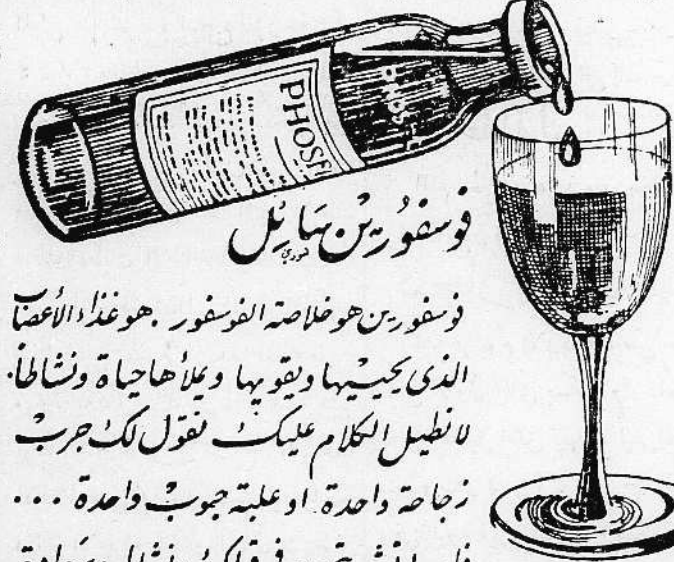 PHOSF
فوسفُورِين هَايْل
فوسفورين هو خلاصة الفوسفور . هو غذاء الأعصاب
الذى يحييها ويقويها ويملأها حياة ونشاطاً.
لا نطيل الكلام عليك نقول لك جربْ
زجاجة واحدة او علبة حبوبْ واحدة ...